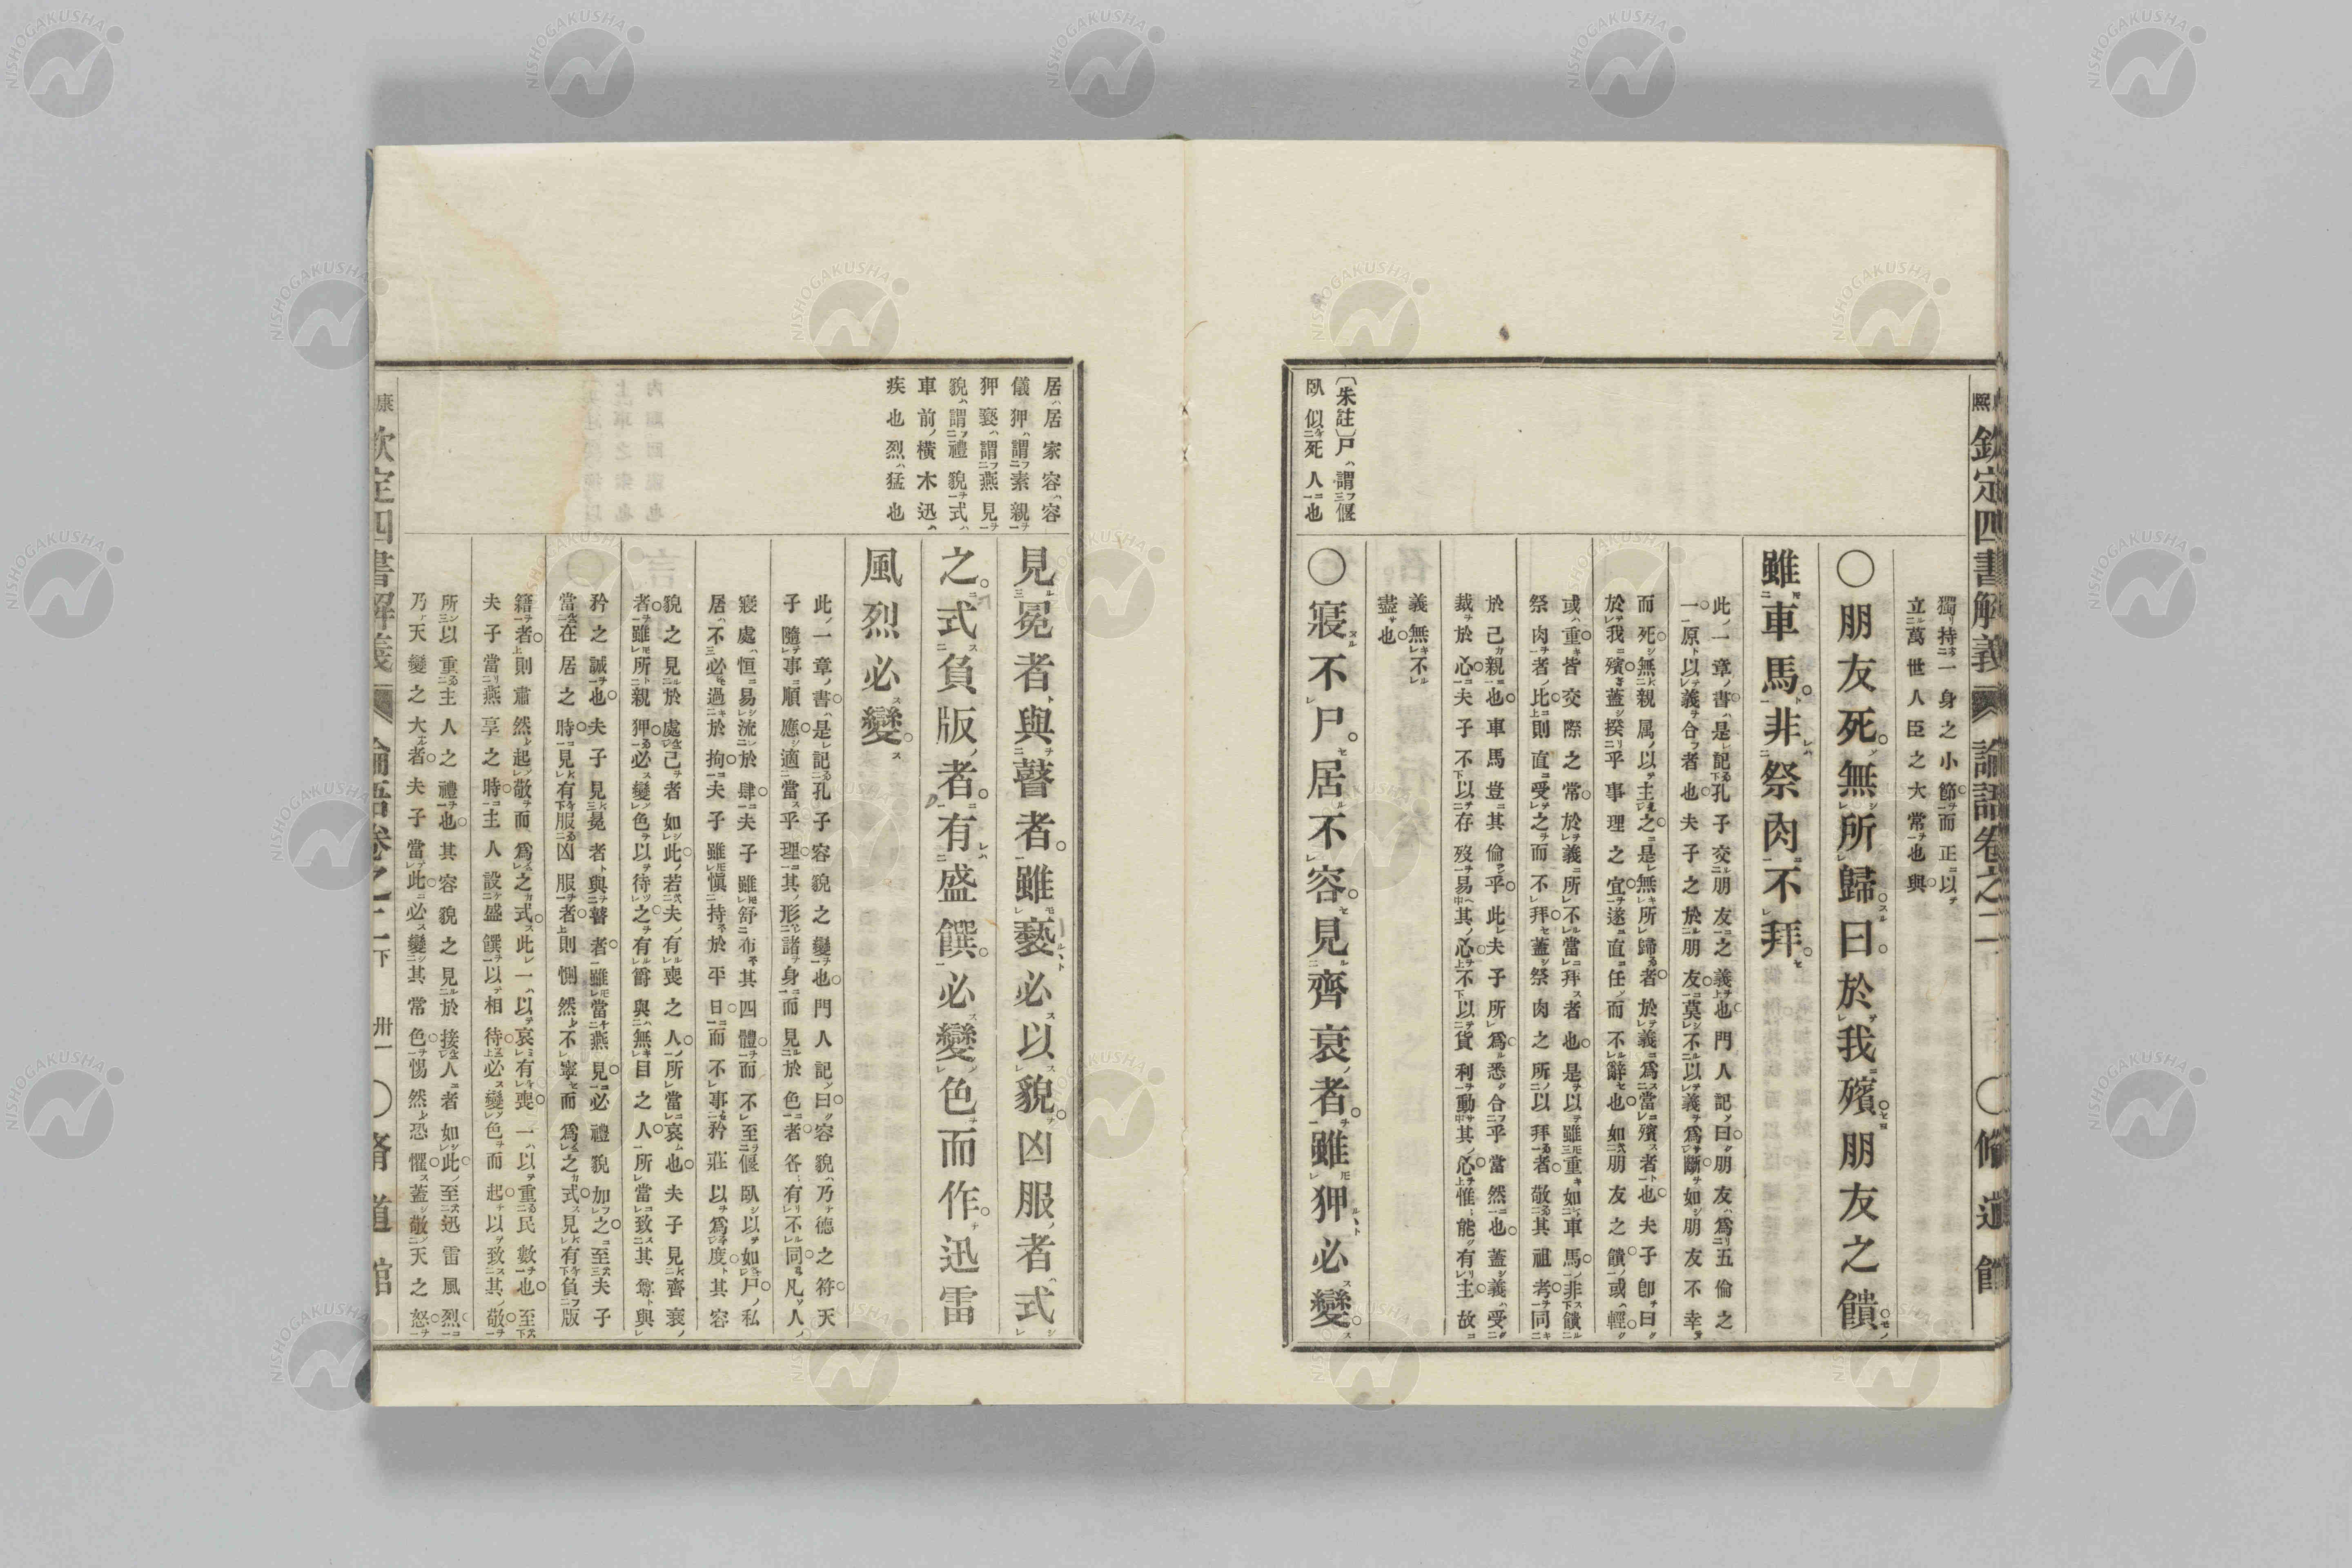 熙 欽定四書解義 論語卷之二 〇脩道館
獨持一身之小節。而正以
立萬世人臣之大常也與。
〇朋友死。無所歸。曰。於我殯。朋友之饋。
雖車馬。非祭肉不拜。
此一章書。是記孔子交朋友之義也。門人記曰。朋友爲五倫之
一。原以義合者也。夫子之於朋友。莫不以義爲斷。如朋友不幸
而死。無親属以主之。是無所歸者。於義爲當殯者也。夫子卽曰
於我殯。蓋揆乎事理之宜。遂直任而不辭也。如朋友之饋。或輕。
或重。皆交際之常。於義所不當拜者也。是以雖重如車馬。非饋
祭肉者比。則直受之而不拜。蓋祭肉之所以拜者。敬其祖考。同
於己親也。車馬豈其倫乎。此夫子所爲。悉合乎當然也。蓋義受
裁於心。夫子不以存歿易其心。不以貨利動其心。惟能有主。故
義無不
盡也。
〔朱註〕尸謂偃
臥似死人也
〇寢不尸。居不容。見齊衰者。雖狎必變。
居居家容容
儀狎謂素親
狎褻謂燕見
貌謂禮貌式
車前橫木迅
疾也烈猛也
見冕者與瞽者。雖褻必以貌。凶服者式
之。式負版者。有盛饌。必變色而作。迅雷
風烈必變。
此一章書。是記孔子容貌之變也。門人記曰。容貌乃德之符。天
子隨事順應。適當乎理。其形諸身。而見於色者。各有不同。凡人
寢處恒易流於肆。夫子雖舒布其四體。而不至偃臥以如尸。私
居不必過於拘。夫子雖愼持於平日。而不事矜莊以爲度。其容
貌之見於處己者如此。若夫有喪之人。所當哀也。夫子見齊衰
者。雖所親狎。必變色以待之。有爵與無目之人。所當致其尊與
矜之誠也。夫子見冕者與瞽者。雖當燕見。必禮貌加之。至夫子
當在居之時。見有服凶服者。則惻然不寧而爲之式。見有負版
籍者。則肅然起敬而爲之式。此一以哀有喪。一以重民數也。至
夫子當燕享之時。主人設盛饌以相待。必變色而起。以致其敬。
所以重主人之禮也。其容貌之見於接人者如此。至迅雷風烈。
乃天變之大者。夫子當此。必變其常色。惕然恐懼。蓋敬天之怒。
康 欽定四書解義 論語卷之二下 卅一 〇脩道館
NISHOGAKUSHA